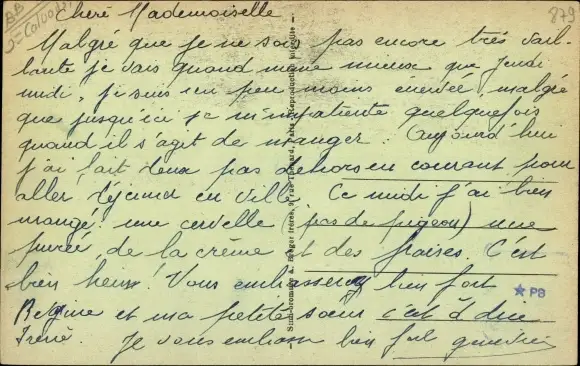 Chère Mademoiselle
879
Malgré que je ne sois pas encore très vail-
lante je vais quand même mieux que jeudi
midi, je suis un peu moins énervée malgré
que jusqu'ici je m'impatiente quelquefois
quand il s'agit de manger. Aujourd'hui
j'ai fait deux pas dehors en courant pour
aller en ville. Ce midi j'ai bien
mangé: une cervelle (pas de pigeon) une
purée, de la crème et des fraises. C'est
bien heureux! Vous embrasserez bien fort
Régine et ma petite sœur c'est à dire
Irène. Je vous embrasse bien fort
PB